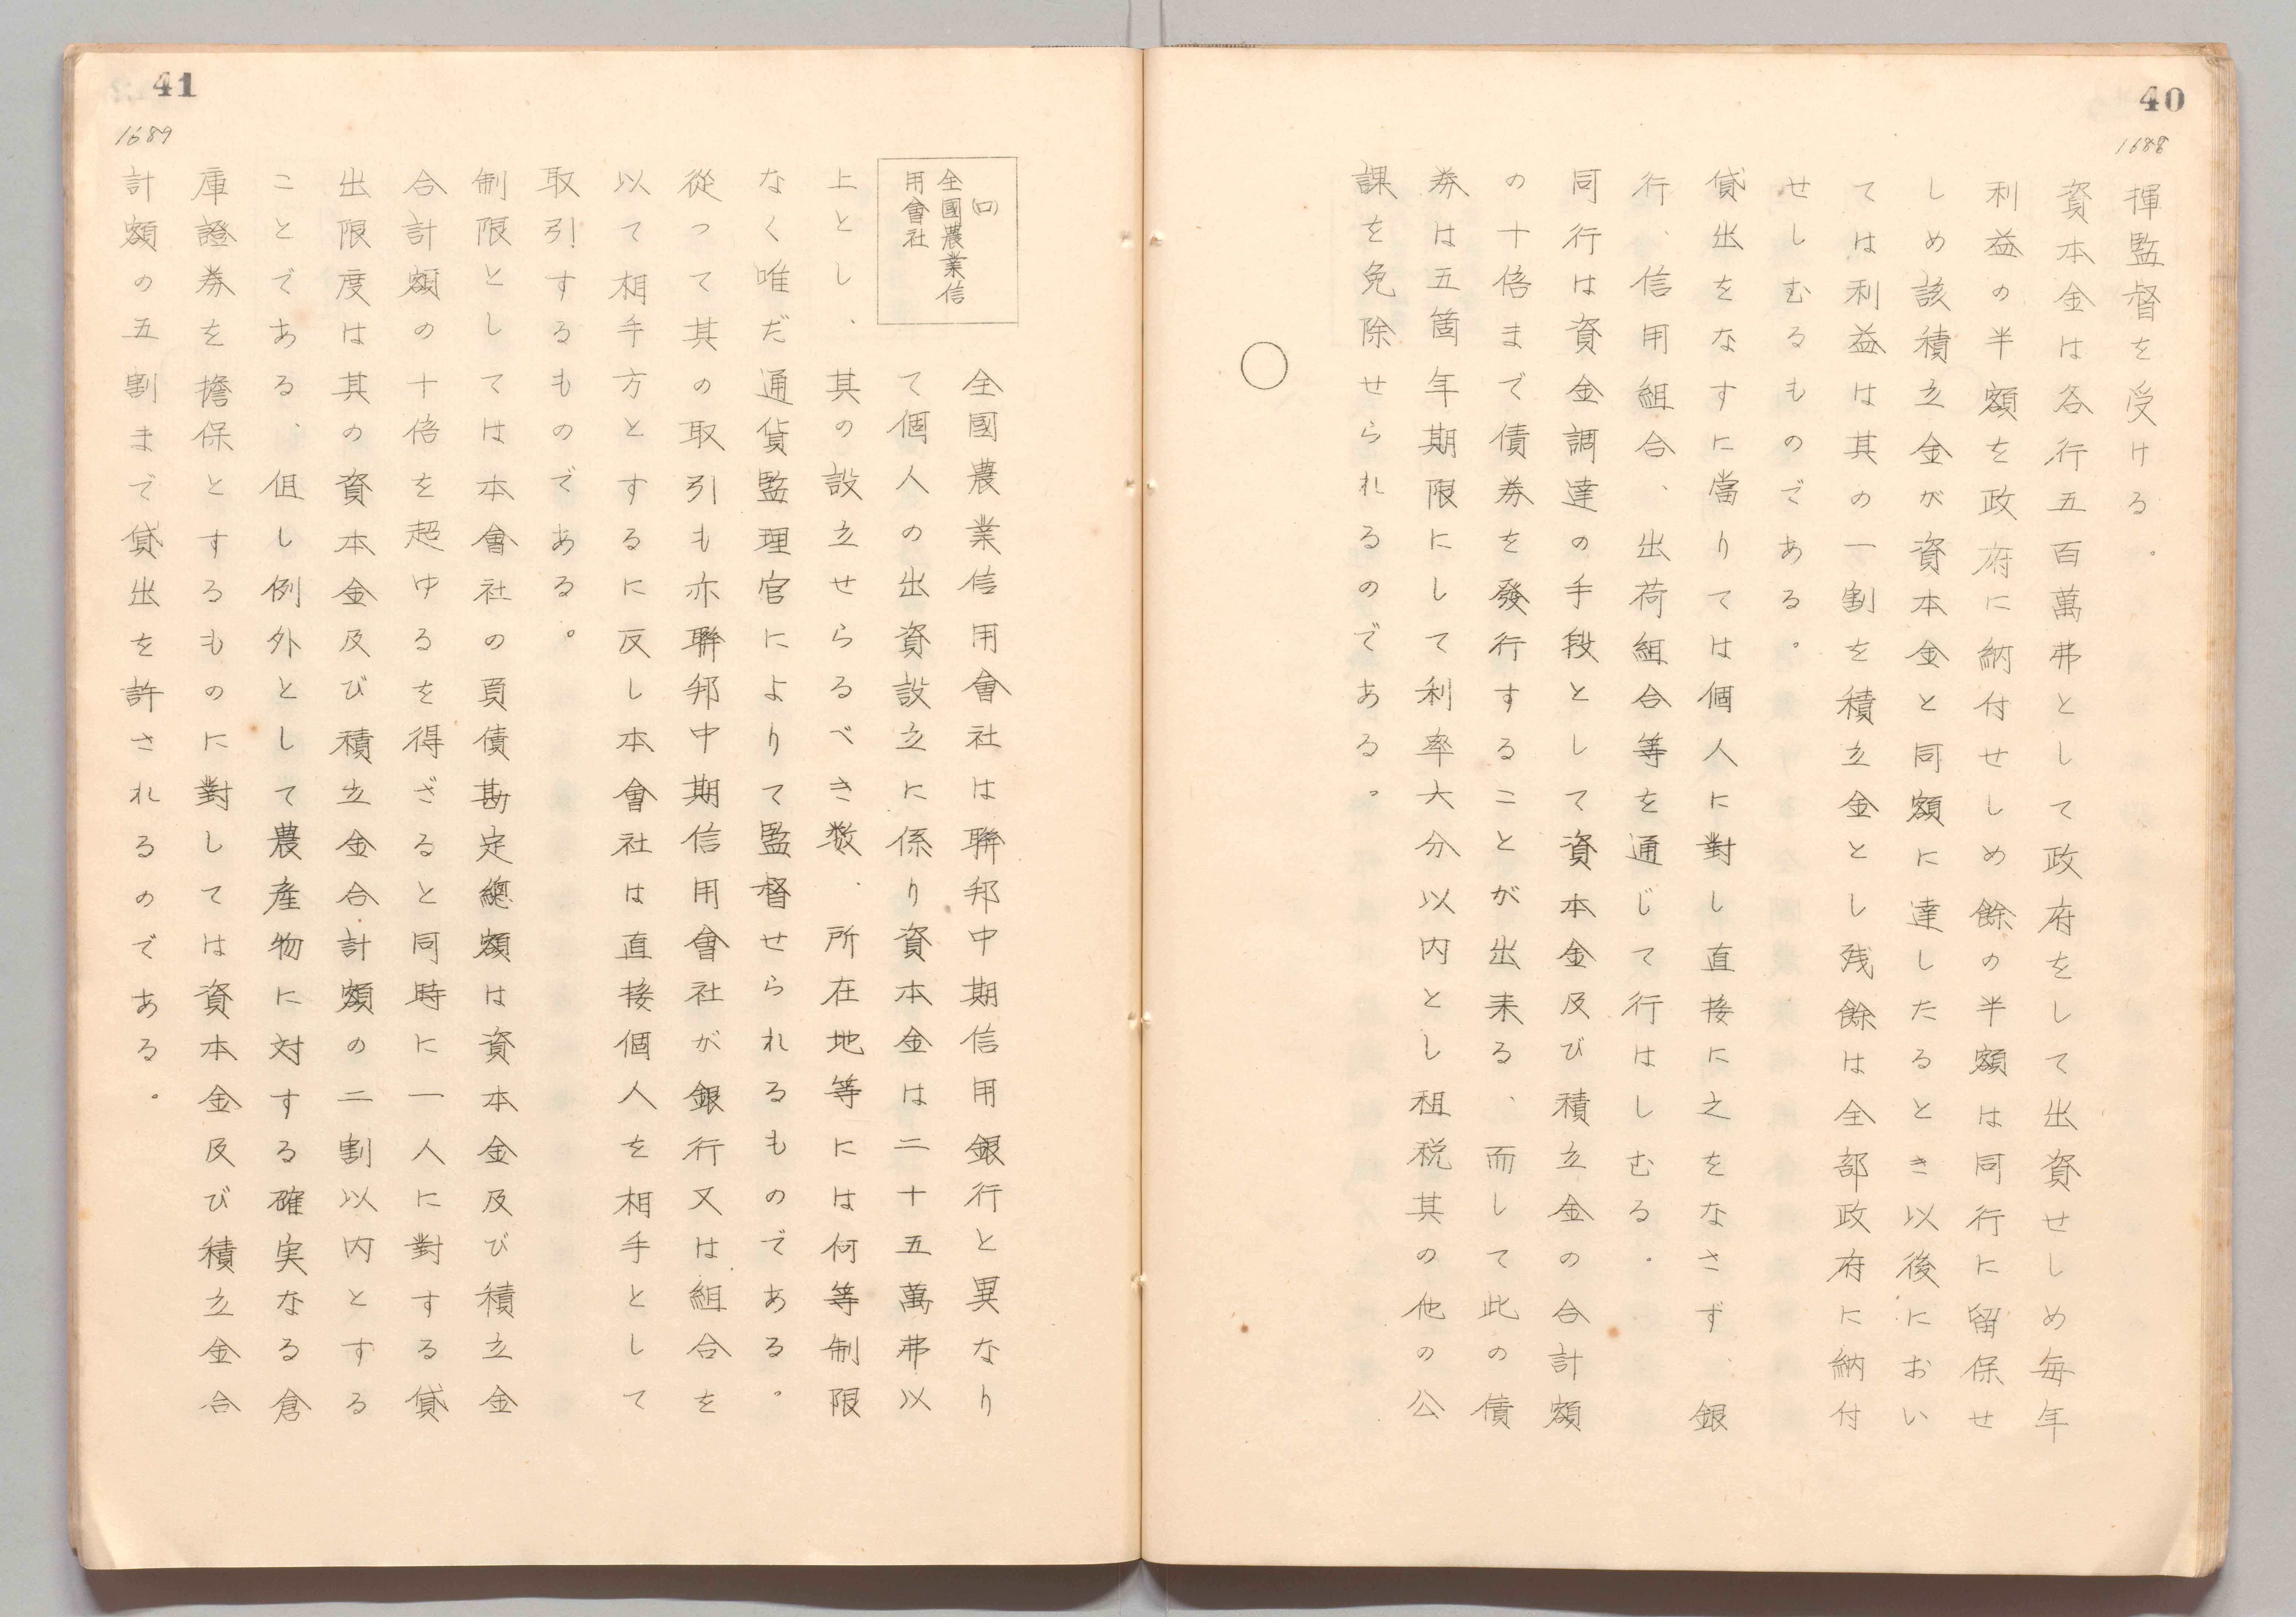 40
1688
揮監督を受ける。
資本金は各行五百萬弗として政府をして出資せしめ毎年
利益の半額を政府に納付せしめ餘の半額は同行に留保せ
しめ該積立金が資本金と同額に達したるとき以後におい
ては利益は其の一割を積立金とし残餘は全部政府に納付
せしむるものである。
貸出をなすに當りては個人に對し直接に之をなさず、銀
行、信用組合、出荷組合等を通じて行はしむる。
同行は資金調達の手段として資本金及び積立金の合計額
の十倍まで債券を發行することが出来る、而して此の債
券は五箇年期限にして利率六分以内とし租税其の他の公
課を免除せられるのである。
41
1689
(ロ)
全國農業信
用會社
全國農業信用會社は聯邦中期信用銀行と異なり
て個人の出資設立に係り資本金は二十五萬弗以
上とし、其の設立せらるべき数、所在地等には何等制限
なく唯だ通貨監理官によりて監督せられるものである。
從って其の取引も亦聯邦中期信用會社が銀行又は組合を
以て相手方とするに反し本會社は直接個人を相手として
取引するものである。
制限としては本會社の負債勘定總額は資本金及び積立金
合計額の十倍を超ゆるを得ざると同時に一人に對する貸
出限度は其の資本金及び積立金合計額の二割以内とする
ことである、但し例外として農産物に対する確実なる倉
庫證券を擔保とするものに對しては資本金及び積立金合
計額の五割まで貸出を許されるのである。